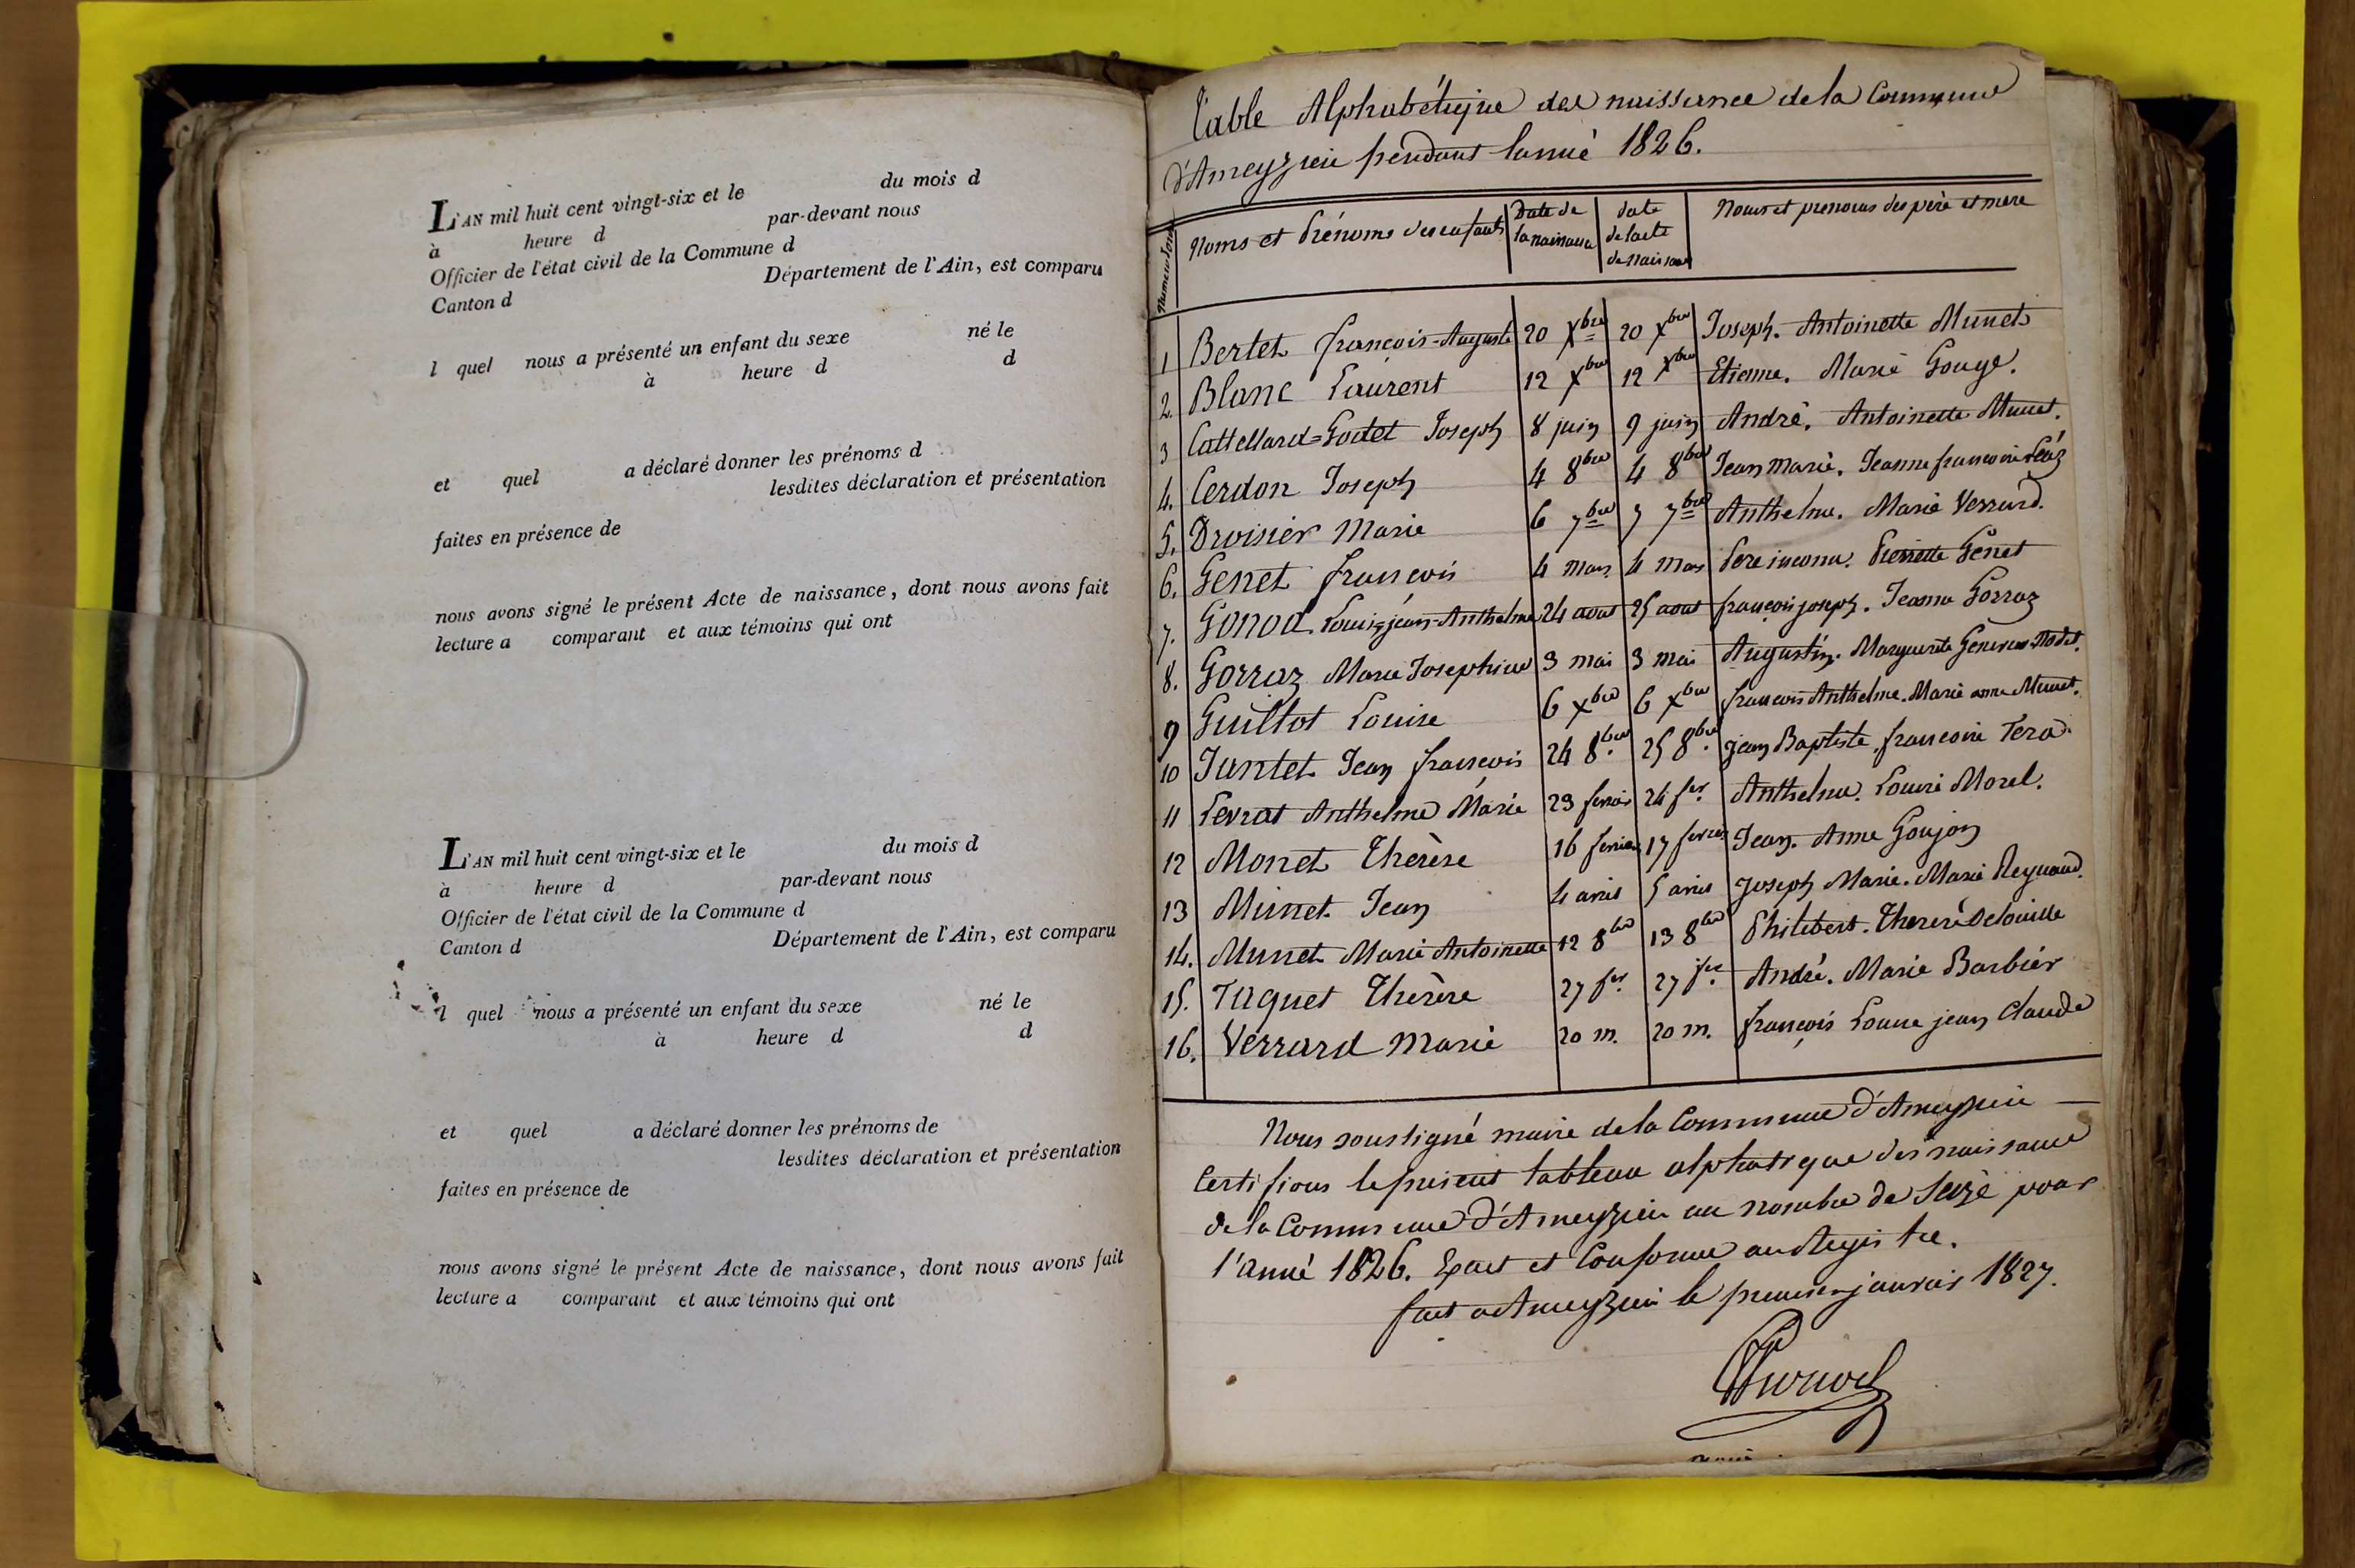 L'AN mil huit cent vingt-six et le du mois d
à heure d par-devant nous
Officier de l'état civil de la Commune d
Canton d Département de l'Ain, est comparu
l quel nous a présenté un enfant du sexe né le
à heure d d
et quel a déclaré donner les prénoms d
lesdites déclaration et présentation
faites en présence de
nous avons signé le présent Acte de naissance, dont nous avons fait
lecture a comparant et aux témoins qui ont
L'AN mil huit cent vingt-six et le du mois d
à heure d par-devant nous
Officier de l'état civil de la Commune d
Canton d Département de l'Ain, est comparu
l quel nous a présenté un enfant du sexe né le
à heure d d
et quel a déclaré donner les prénoms de
lesdites déclaration et présentation
faites en présence de
nous avons signé le présent Acte de naissance, dont nous avons fait
lecture a comparant et aux témoins qui ont
Table Alphabétique des naissance de la Commune
d'Ameyzieu pendant l'anné 1826.
Noms et Prénoms des enfants Date de la naissance date de l'acte de naissance Noms et prenoms des père et mere
1 Bertet françois-Auguste 20 Xbre 20 Xbre Joseph. Antoinette Munet
2. Blanc Laurent 12 Xbre 12 Xbre Etienne. Marie Gouge.
3 Cattellard=Godet Joseph 8 juin 9 juin André. Antoinette Munet.
4. Cerdon Joseph 4 8bre 4 8bre Jean Marie. Jeanne françoise
5. Droisier Marie 6 7bre 7 7bre Anthelme. Marie Verrard.
6. Genet françois 4 mars 4 mars Pere inconnu. Pierrette Genet
7. Gonod Louis jean-Anthelme 24 aout 25 aout françois joseph. Jeanne Gorraz
8. Gorraz Marie Josephine 3 mai 3 mai Augustin. Marguerite
9 Guillot Louise 6 Xbre 6 Xbre françois Anthelme. Marie anne Munet.
10 Jantet Jean françois 24 8bre 25 8bre jean Baptiste, françoise
11 Levrat Anthelme Marie 23 fevrier 24 fer Anthelme. Louise Morel.
12 Monet Thérèse 16 fevrier 17 fevrier Jean. Anne Goujon
13 Munet Jean 4 avril 5 avril Joseph Marie. Marie Reynaud.
14. Munet Marie Antoinette 12 8bre 13 8bre Philibert. Therese Delouille
15. Taquet Thérèse 27 fer 27 fer André. Marie Barbier
16. Verrard Marie 20 m. 20 m. françois Louise jean Claude
Nous soussigné maire de la Commune d'Ameyzieu
Certifions le présent tableau des naissance
de la Commune d'Ameyzieu au nombre de Seize pour
l'anné 1826. Exact et Conforme au Registre.
fait a Ameyzieu le premier janvier 1827.